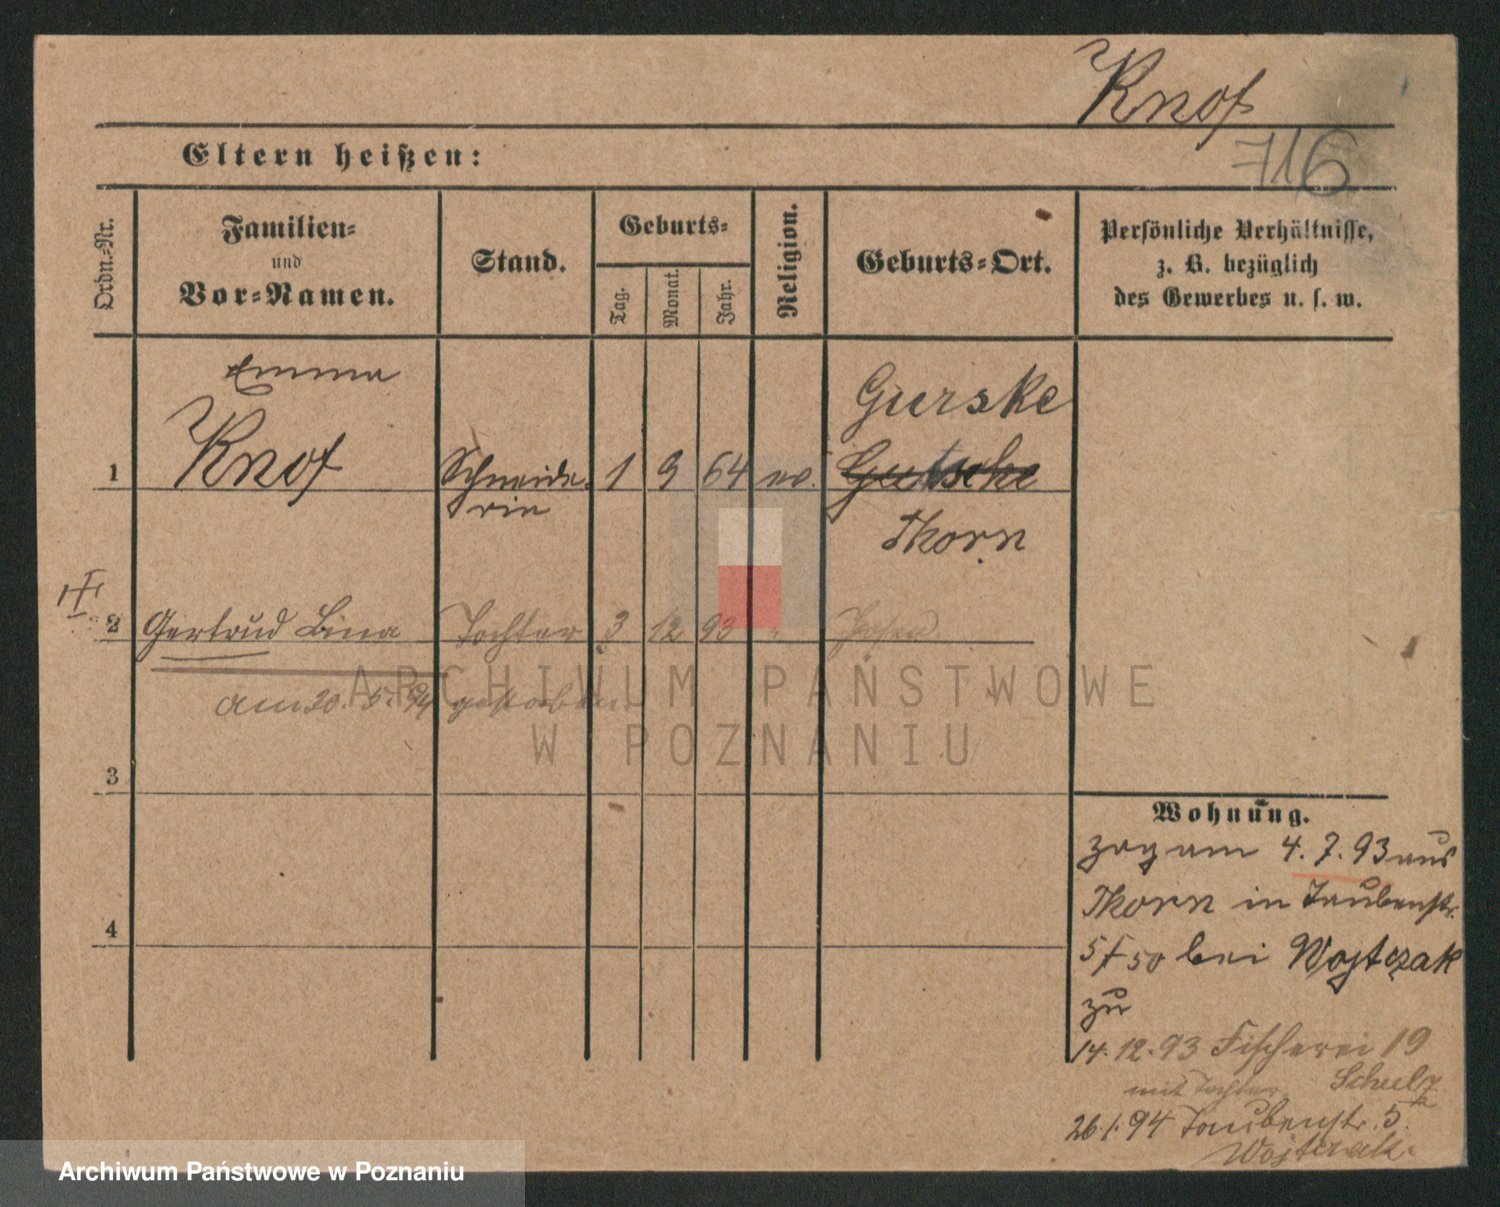 Knof
716
Eltern heißen:
Ordn.-Nr.
Familien-
und
Vor-Namen.
Stand.
Geburts-
Tag.
Monat.
Jahr.
Religion.
Geburts-Ort.
Persönliche Verhältnisse,
z. B. bezüglich
des Gewerbes u. s. w.
Emma
Knof
1
Schneide-
rin
1 9 64 ev.
Gurske
Gutsche
Thorn
2 Gertrud Lina Tochter 3 12 93 " Posen
am 20. 5. 94 gestorben
3
4
Wohnung.
zog am 4. 7. 93 aus
Thorn in Taubenstr.
5 f 50 bei Wojtczak
zu
14. 12. 93 Fischerei 19
mit Tochter Schulz
26. 1. 94 Taubenstr. 5.
Wojtczak.
ARCHIWUM PAŃSTWOWE
W POZNANIU
Archiwum Państwowe w Poznaniu